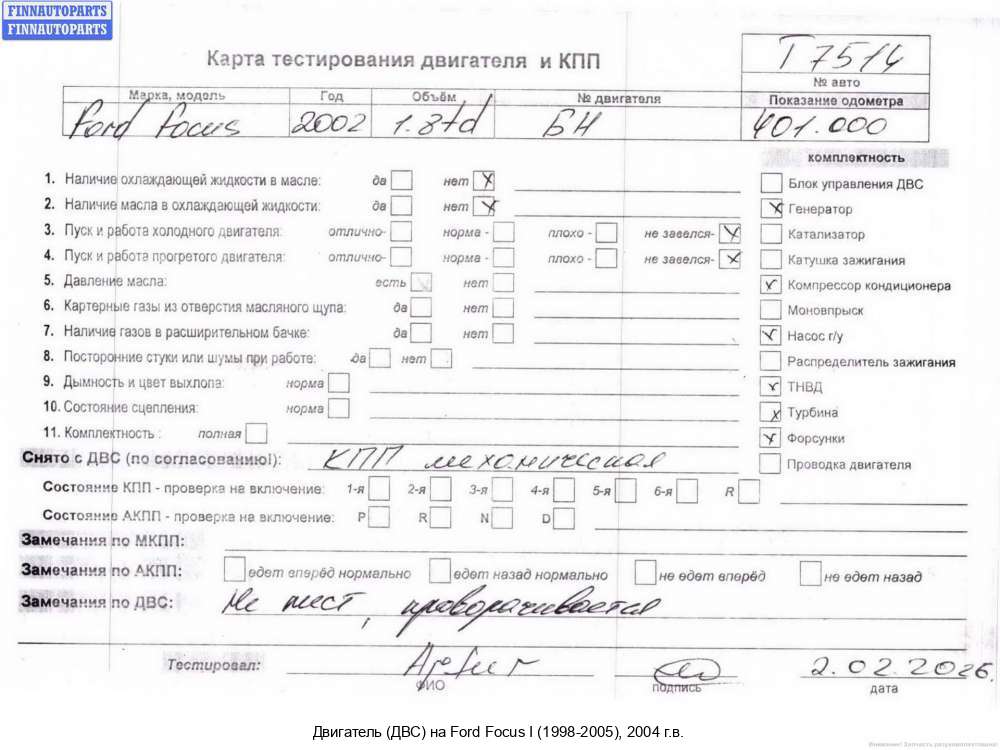 FINNAUTOPARTS
FINNAUTOPARTS
Карта тестирования двигателя и КПП
T7514
№ авто
Марка, модель Год Объём № двигателя Показание одометра
Ford Focus 2002 1.8td БН 401.000
комплектность
1. Наличие охлаждающей жидкости в масле: да нет X
Блок управления ДВС
2. Наличие масла в охлаждающей жидкости: да нет X
Генератор
3. Пуск и работа холодного двигателя: отлично- норма - плохо - не завелся-
Катализатор
4. Пуск и работа прогретого двигателя: отлично- норма - плохо - не завелся-
Катушка зажигания
5. Давление масла: есть нет
Компрессор кондиционера
6. Картерные газы из отверстия масляного щупа: да нет
Моновпрыск
7. Наличие газов в расширительном бачке: да нет
Насос г/у
8. Посторонние стуки или шумы при работе: да нет
Распределитель зажигания
9. Дымность и цвет выхлопа: норма
ТНВД
10. Состояние сцепления: норма
Турбина
11. Комплектность : полная
Форсунки
Снято с ДВС (по согласованию!): КПП механическая
Проводка двигателя
Состояние КПП - проверка на включение: 1-я 2-я 3-я 4-я 5-я 6-я R
Состояние АКПП - проверка на включение: P R N D
Замечания по МКПП:
Замечания по АКПП: едет вперёд нормально едет назад нормально не едет вперёд не едет назад
Замечания по ДВС: Не тест, проворачивается
Тестировал:
2.02.2026.
ФИО подпись дата
Двигатель (ДВС) на Ford Focus I (1998-2005), 2004 г.в.